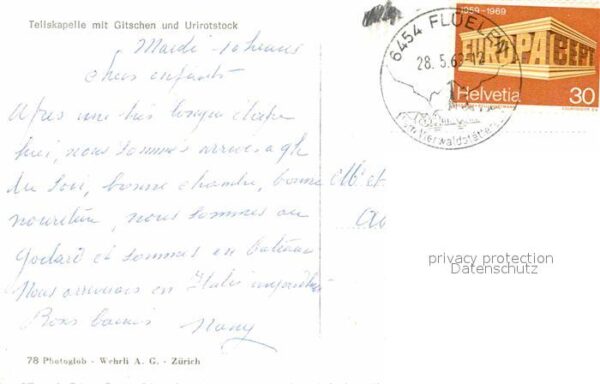 Tellskapelle mit Gitschen und Urirotstock
Mardi - 10 heures
chers enfants
Après une très longue étape
hier, nous sommes arrivés a 9h
du soir, bonne chambre, bonne
nourriture, nous sommes au
et sommes en bateau
Nous arrivons en Italie
Bons baisers Nany
78 Photoglob - Wehrli A. G. - Zürich
6454 FLÜELEN
28. 5. 69-12
Vierwaldstätter
1959-1969
EUROPA CEPT
Helvetia 30
privacy protection
Datenschutz